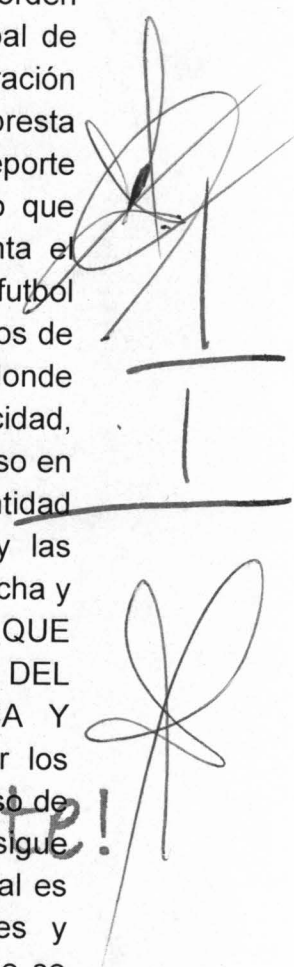 orden
pal de
ración
oresta
eporte
o que
nta el
futbol
os de
donde
cidad,
so en
ntidad
y las
cha y
QUE
DEL
A Y
r los
so de
te!
sigue
al es
es y